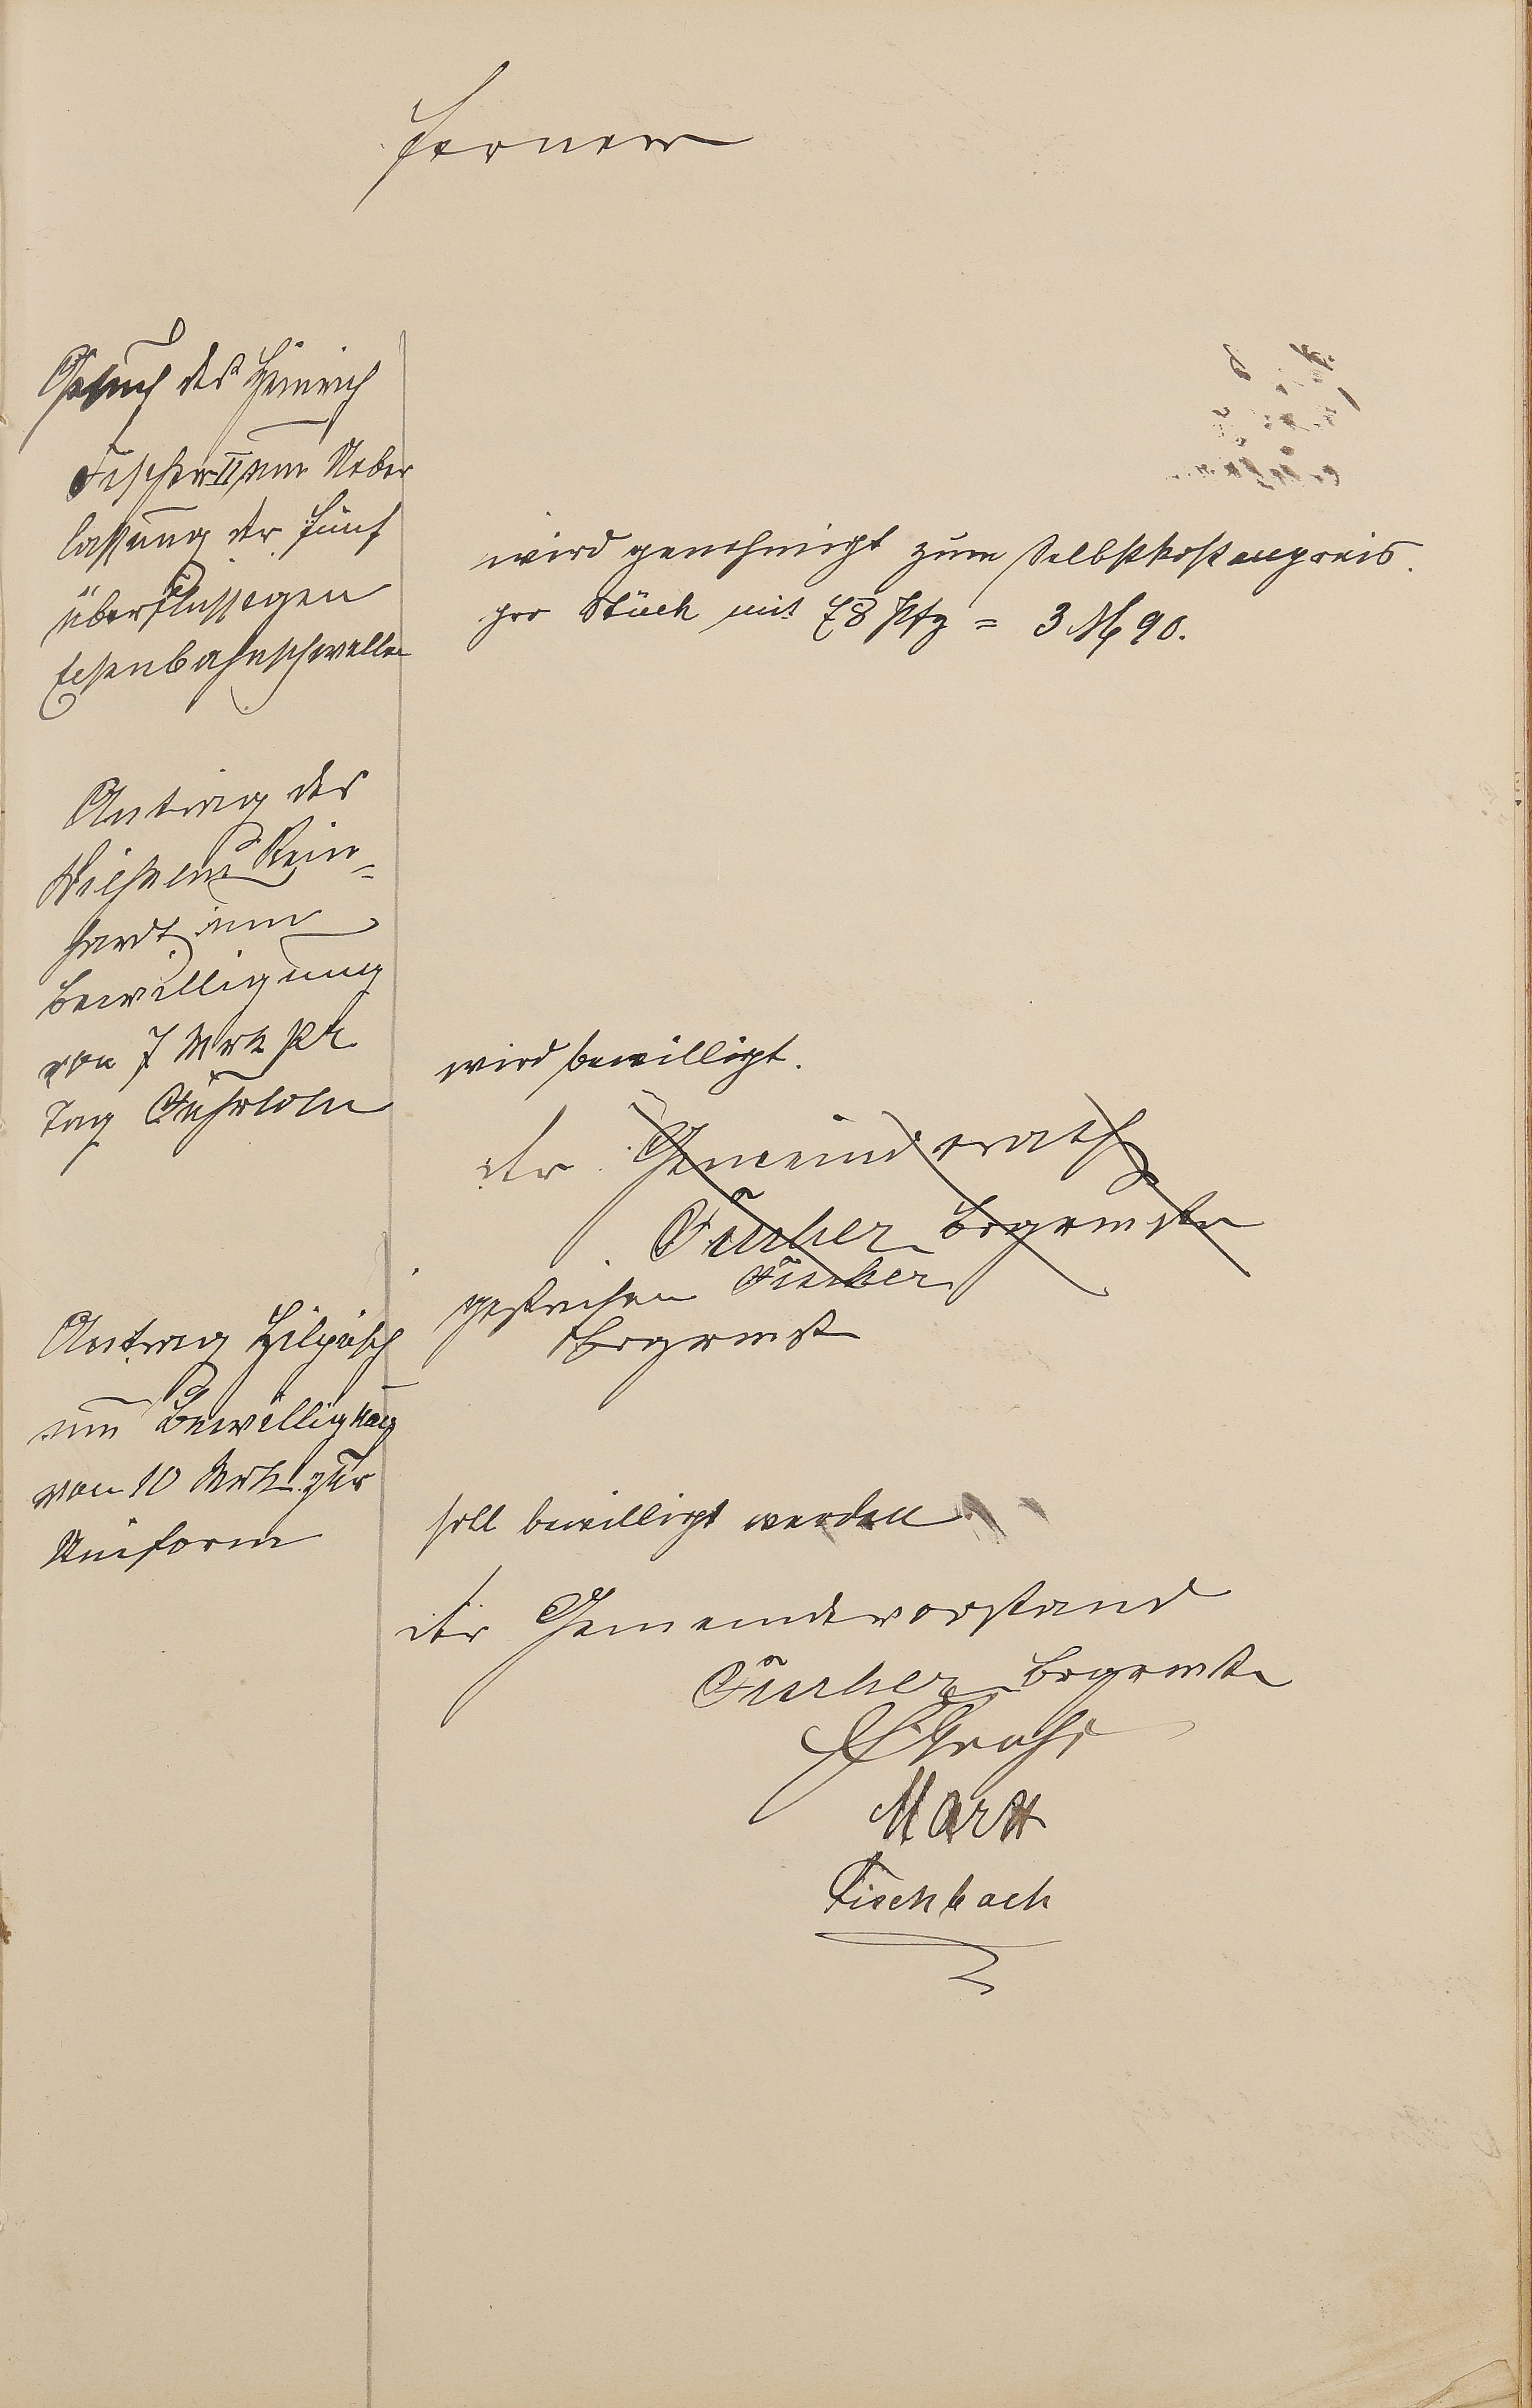 Ferner
Gesuch des Heinrich
Fischer II um Ueber
lassung der fünf
überflüssigen
Eisenbahnschwellen
wird genehmigt zum Selbstkostenpreis.
pro Stück mit 78 Pfg = 3 M 90.
Antrag des
Wilhelm Rein=
hardt um
Bewilligung
von 7 Mrk pr
Tag Fuhrlohn
wird bewilligt.
der Gemeinderath
Fischer Brgrmstr
gestrichen Fischer
Brgrmst
Antrag Hilpisch
um Bewilligung
von 10 Mrk zur
Uniform
soll bewilligt werden
der Gemeindevorstand
Fischer Brgrmstr
Groß
Marx
Fischbach